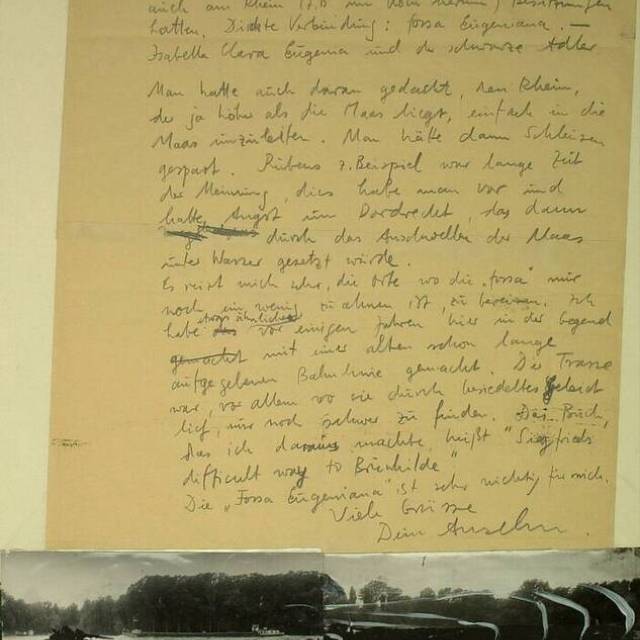 auch am Rhein
hatten. Direkte Verbindung: fossa Eugeniana. —
Isabella Clara Eugenia und der schwarze Adler
Man hatte auch daran gedacht, den Rhein,
der ja höher als die Maas liegt, einfach in die
Maas umzuleiten. Man hätte dann Schleusen
gespart. Rubens z. Beispiel war lange Zeit
der Meinung, dies habe man vor und
hatte Angst um Dordrecht, das dann
durch das Anschwellen der Maas
unter Wasser gesetzt würde.
Es reizt mich aber, die Orte wo die „fossa" nur
noch ein wenig zu ahnen ist, zu bereisen. Ich
habe etwas ähnliches vor einigen Jahren hier in der Gegend
gemacht mit einer alten schon lange
aufgegebenen Bahnlinie gemacht. Die Trasse
war, vor allem wo sie durch besiedeltes Gebiet
lief, nur noch schwer zu finden. Das Buch,
das ich daraus machte, heißt "Siegfrieds
difficult way to Brünhilde"
Die „Fossa Eugeniana" ist sehr wichtig für mich.
Viele Grüsse
Dein Anselm.